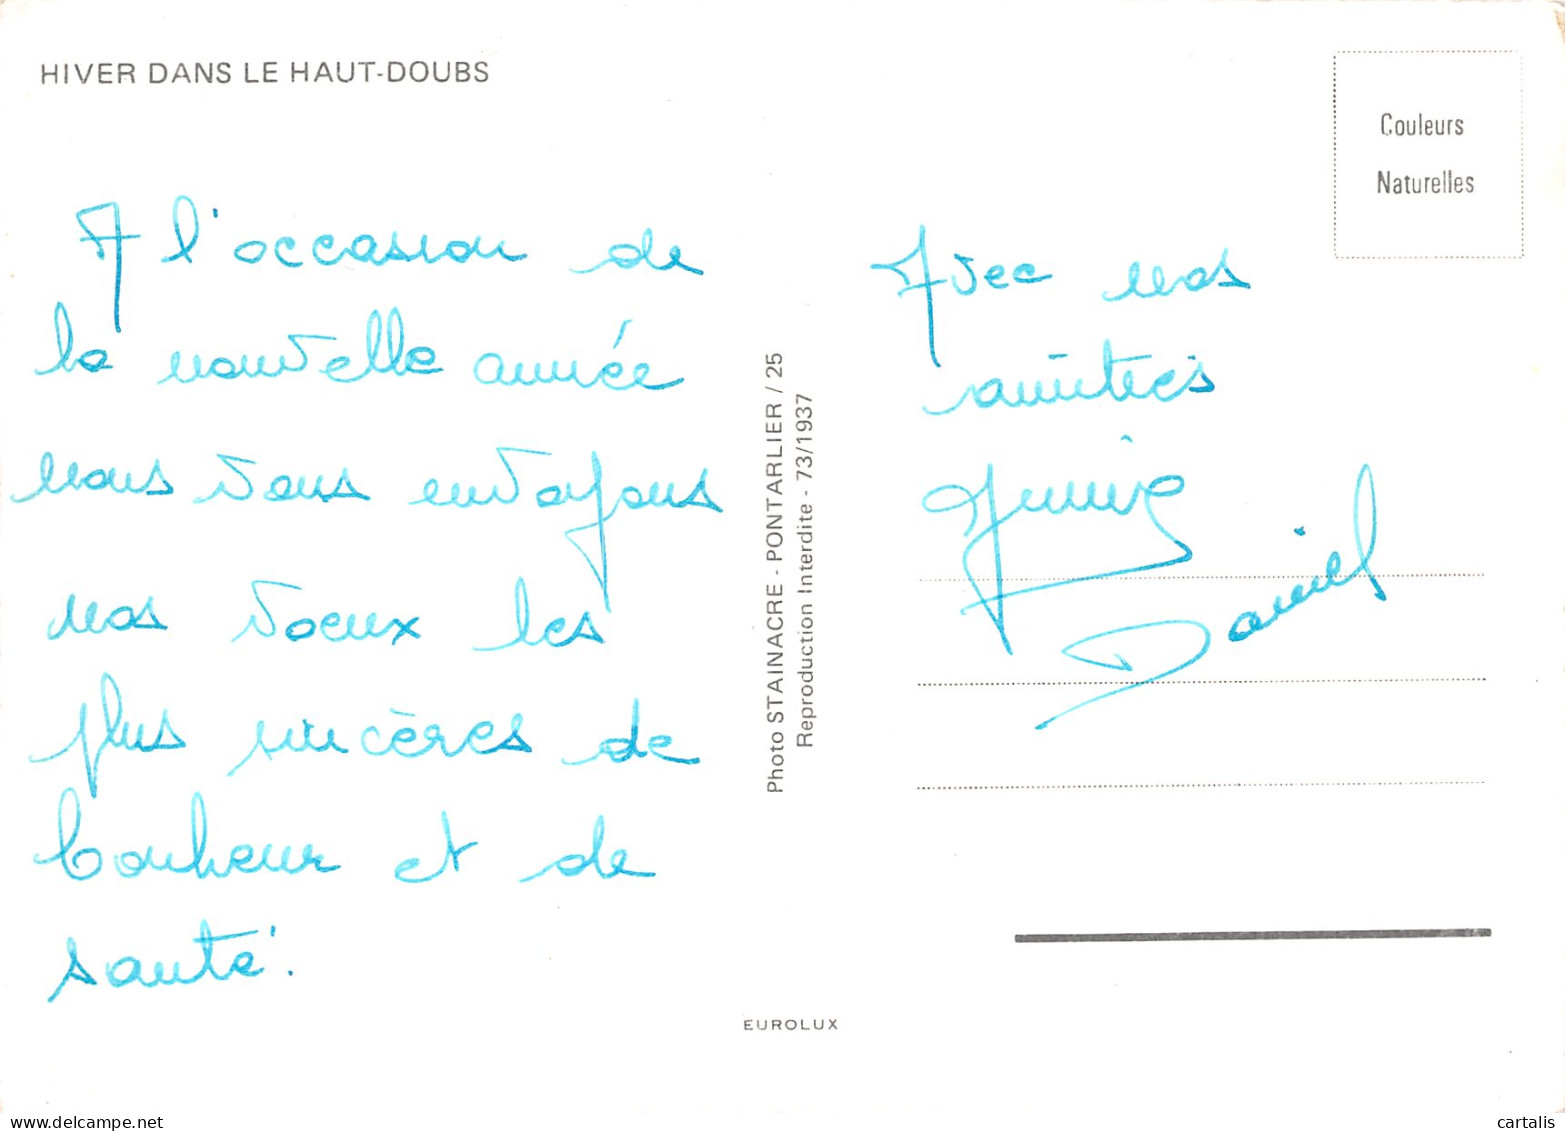 HIVER DANS LE HAUT-DOUBS
A l'occasion de
la nouvelle année
nous vous envoyons
nos voeux les
plus sincères de
bonheur et de
santé.
Photo STAINACRE - PONTARLIER / 25
Reproduction Interdite - 73/1937
EUROLUX
Couleurs
Naturelles
Avec nos
amitiés
Daniel
cartalis